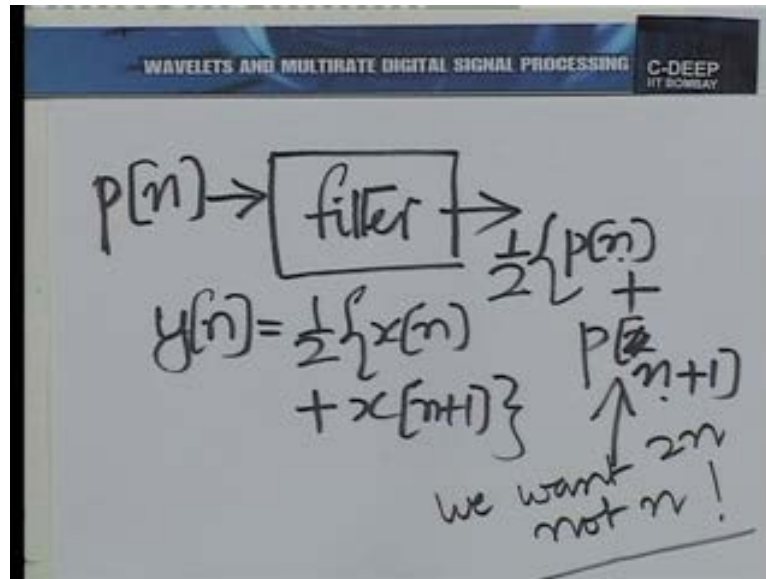 WAVELETS AND MULTIRATE DIGITAL SIGNAL PROCESSING
C-DEEP
IIT BOMBAY
p[n] → filter → 1/2 { p[n]
+
p[n+1]
y[n] = 1/2 { x[n]
+ x[n+1] }
we want 2n
not n !